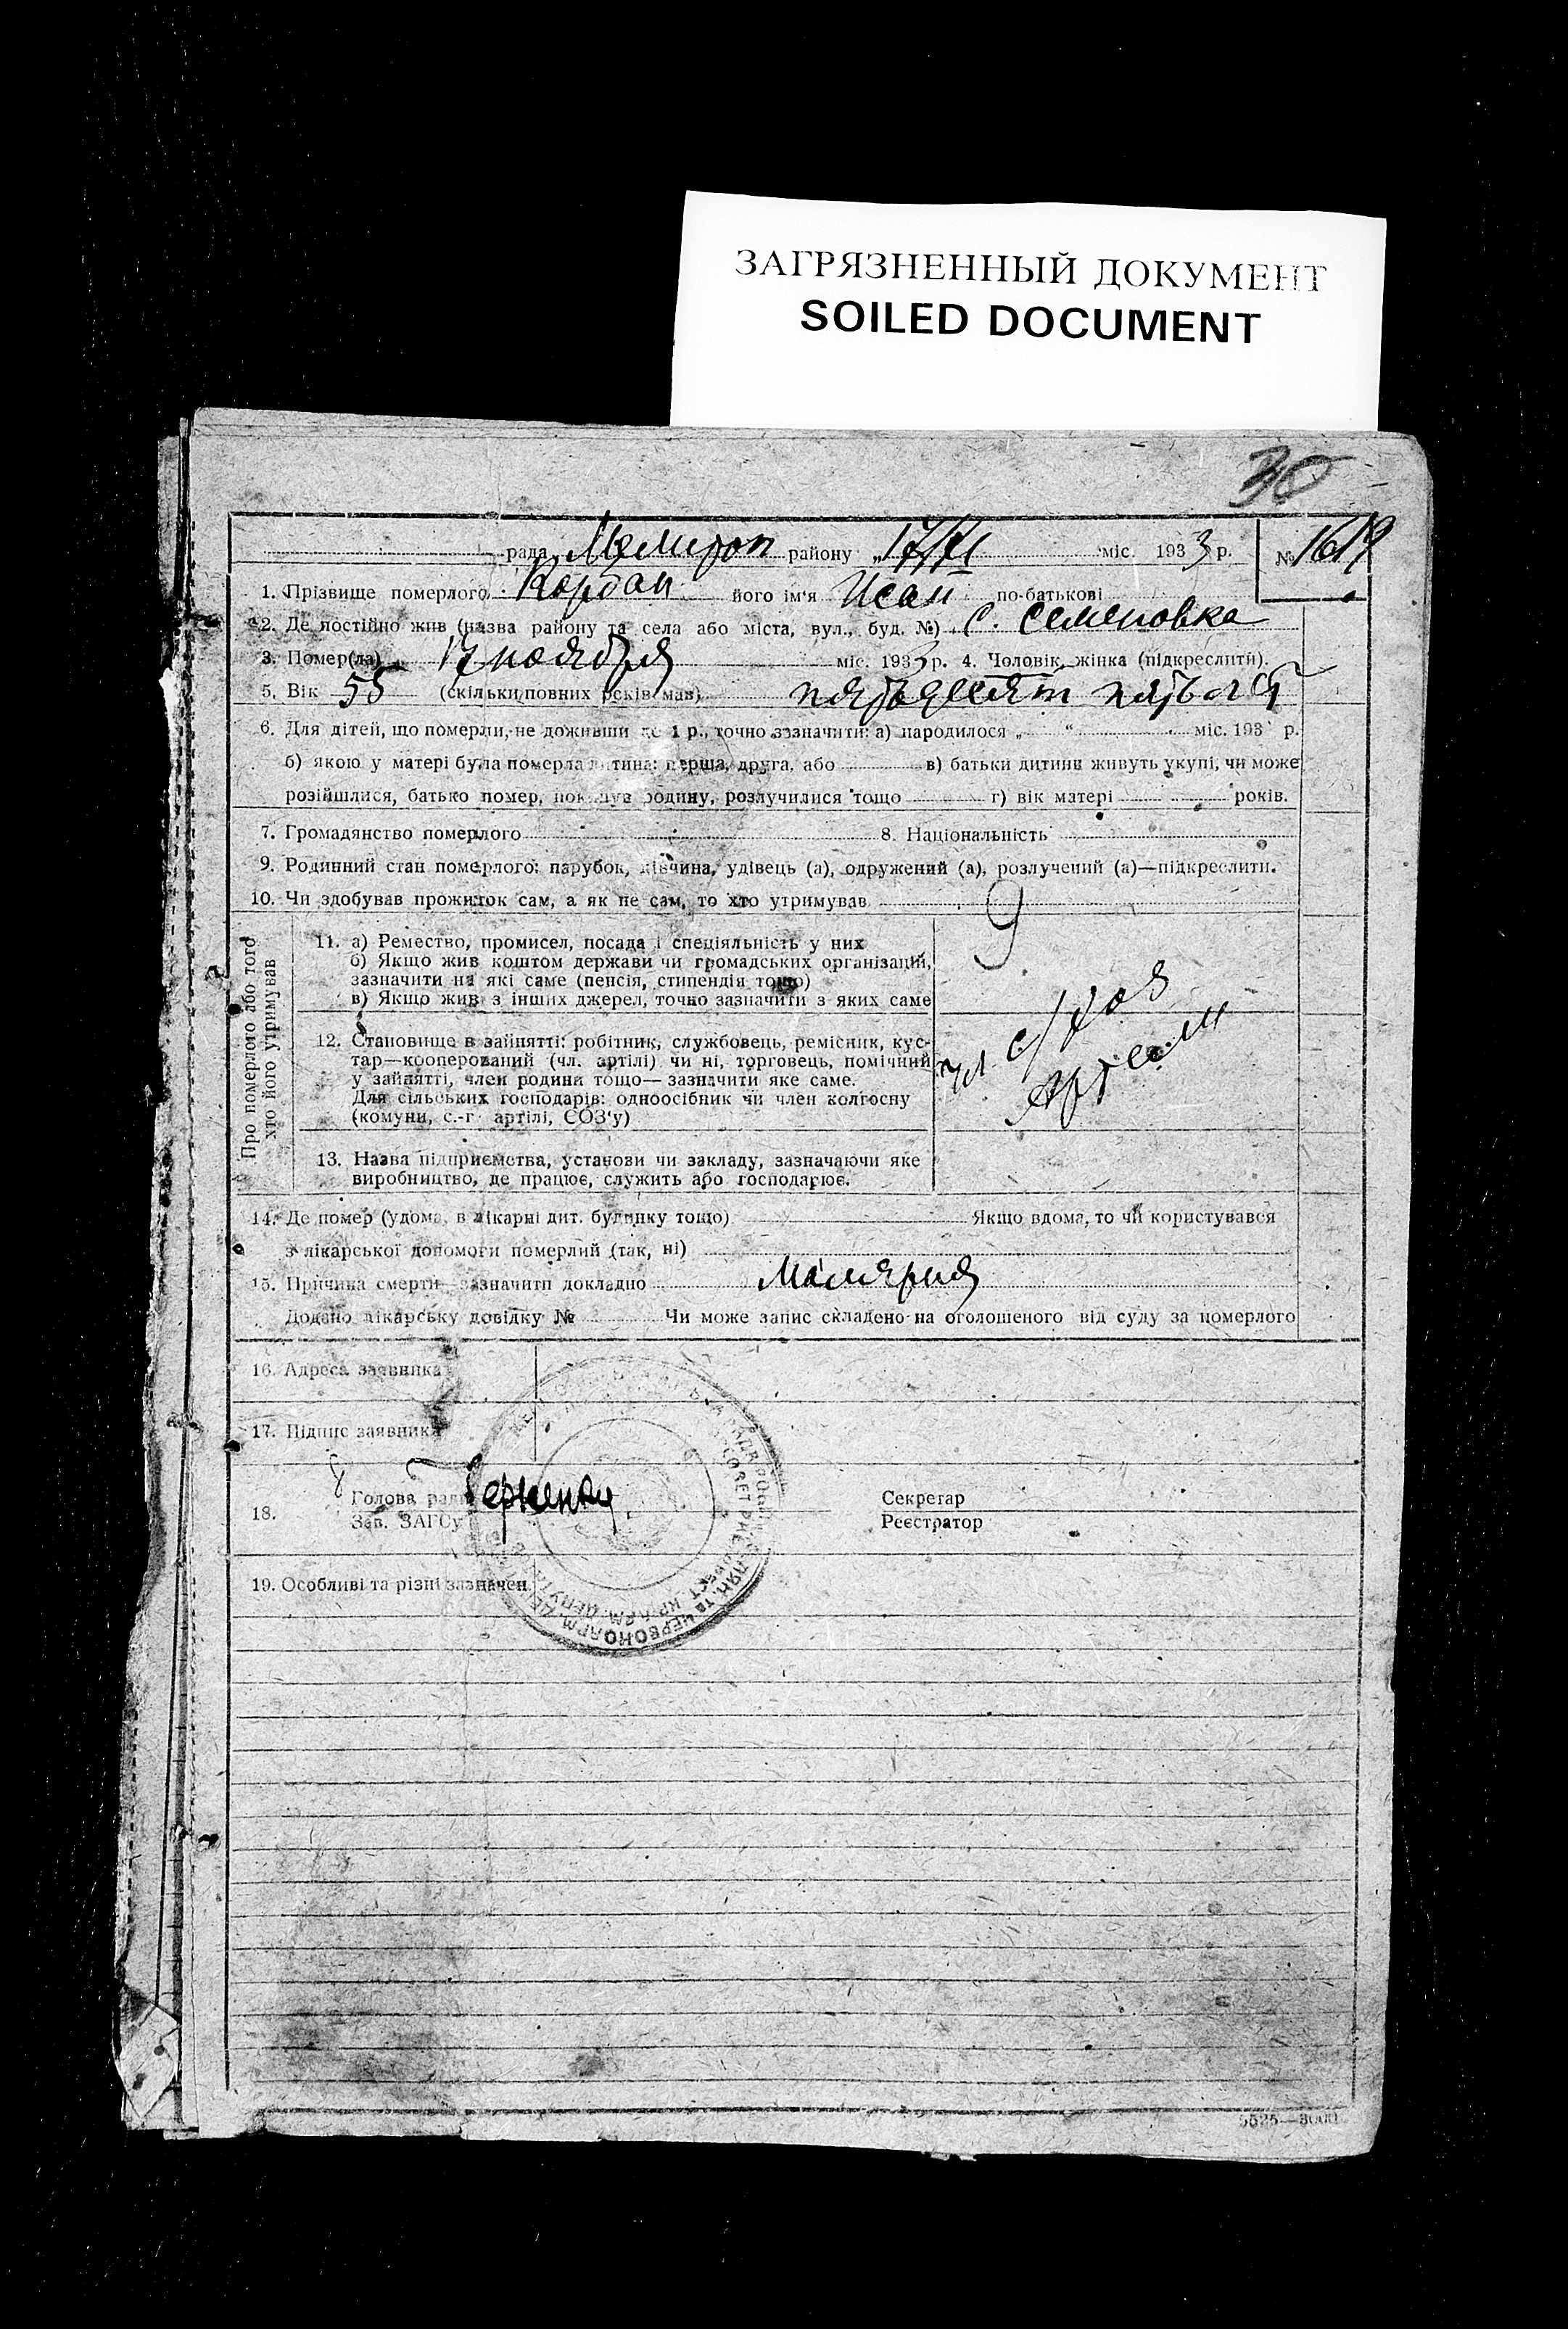 ЗАГРЯЗНЕННЫЙ ДОКУМЕНТ
SOILED DOCUMENT
30
рада Мелитоп району „17/XI міс. 1933 р. № 1619
1. Прізвище померлого Корбан його ім'я Исай по-батькові
2. Де постійно жив (назва району та села або міста, вул., буд. №) С. Семеновка
3. Помер(ла) 17 ноября міс. 1933 р. 4. Чоловік, жінка (підкреслити).
5. Вік 55 (скільки повних років мав) пятьдесят пять лет
6. Для дітей, що померли, не доживши до 1 р., точно зазначити: а) народилося „ “ міс. 193 р.
б) якою у матері була померла дитина: перша, друга, або в) батьки дитини живуть укупі, чи може
розійшлися, батько помер, покинув родину, розлучилися тощо г) вік матері років.
7. Громадянство померлого 8. Національність
9. Родинний стан померлого: парубок, дівчина, удівець (а), одружений (а), розлучений (а)—підкреслити.
10. Чи здобував прожиток сам, а як не сам, то хто утримував
9
Про померлого або того хто його утримував
11. а) Ремество, промисел, посада і спеціяльність у них
б) Якщо жив коштом держави чи громадських організацій,
зазначити на які саме (пенсія, стипендія тощо)
в) Якщо жив з інших джерел, точно зазначити з яких саме
12. Становище в зайнятті: робітник, службовець, ремісник, кус-
тар—кооперований (чл. артілі) чи ні, торговець, помічний
у зайнятті, член родини тощо— зазначити яке саме.
Для сільських господарів: одноосібник чи член колгоспу
(комуни, с.-г. артілі, СОЗ'у)
чл. с/хоз
артели
13. Назва підприємства, установи чи закладу, зазначаючи яке
виробництво, де працює, служить або господарює.
14. Де помер (удома, в лікарні дит. будинку тощо) Якщо вдома, то чи користувався
з лікарської допомоги померлий (так, ні)
15. Причина смерти—зазначити докладно Малярия
Додано лікарську довідку № Чи може запис складено на оголошеного від суду за померлого
16. Адреса заявника
17. Підпис заявника
18. Голова ради Секретар
Зав. ЗАГСу Реєстратор
19. Особливі та різні зазначен.
ЧЕРВОНОАРМ.
5525—3000